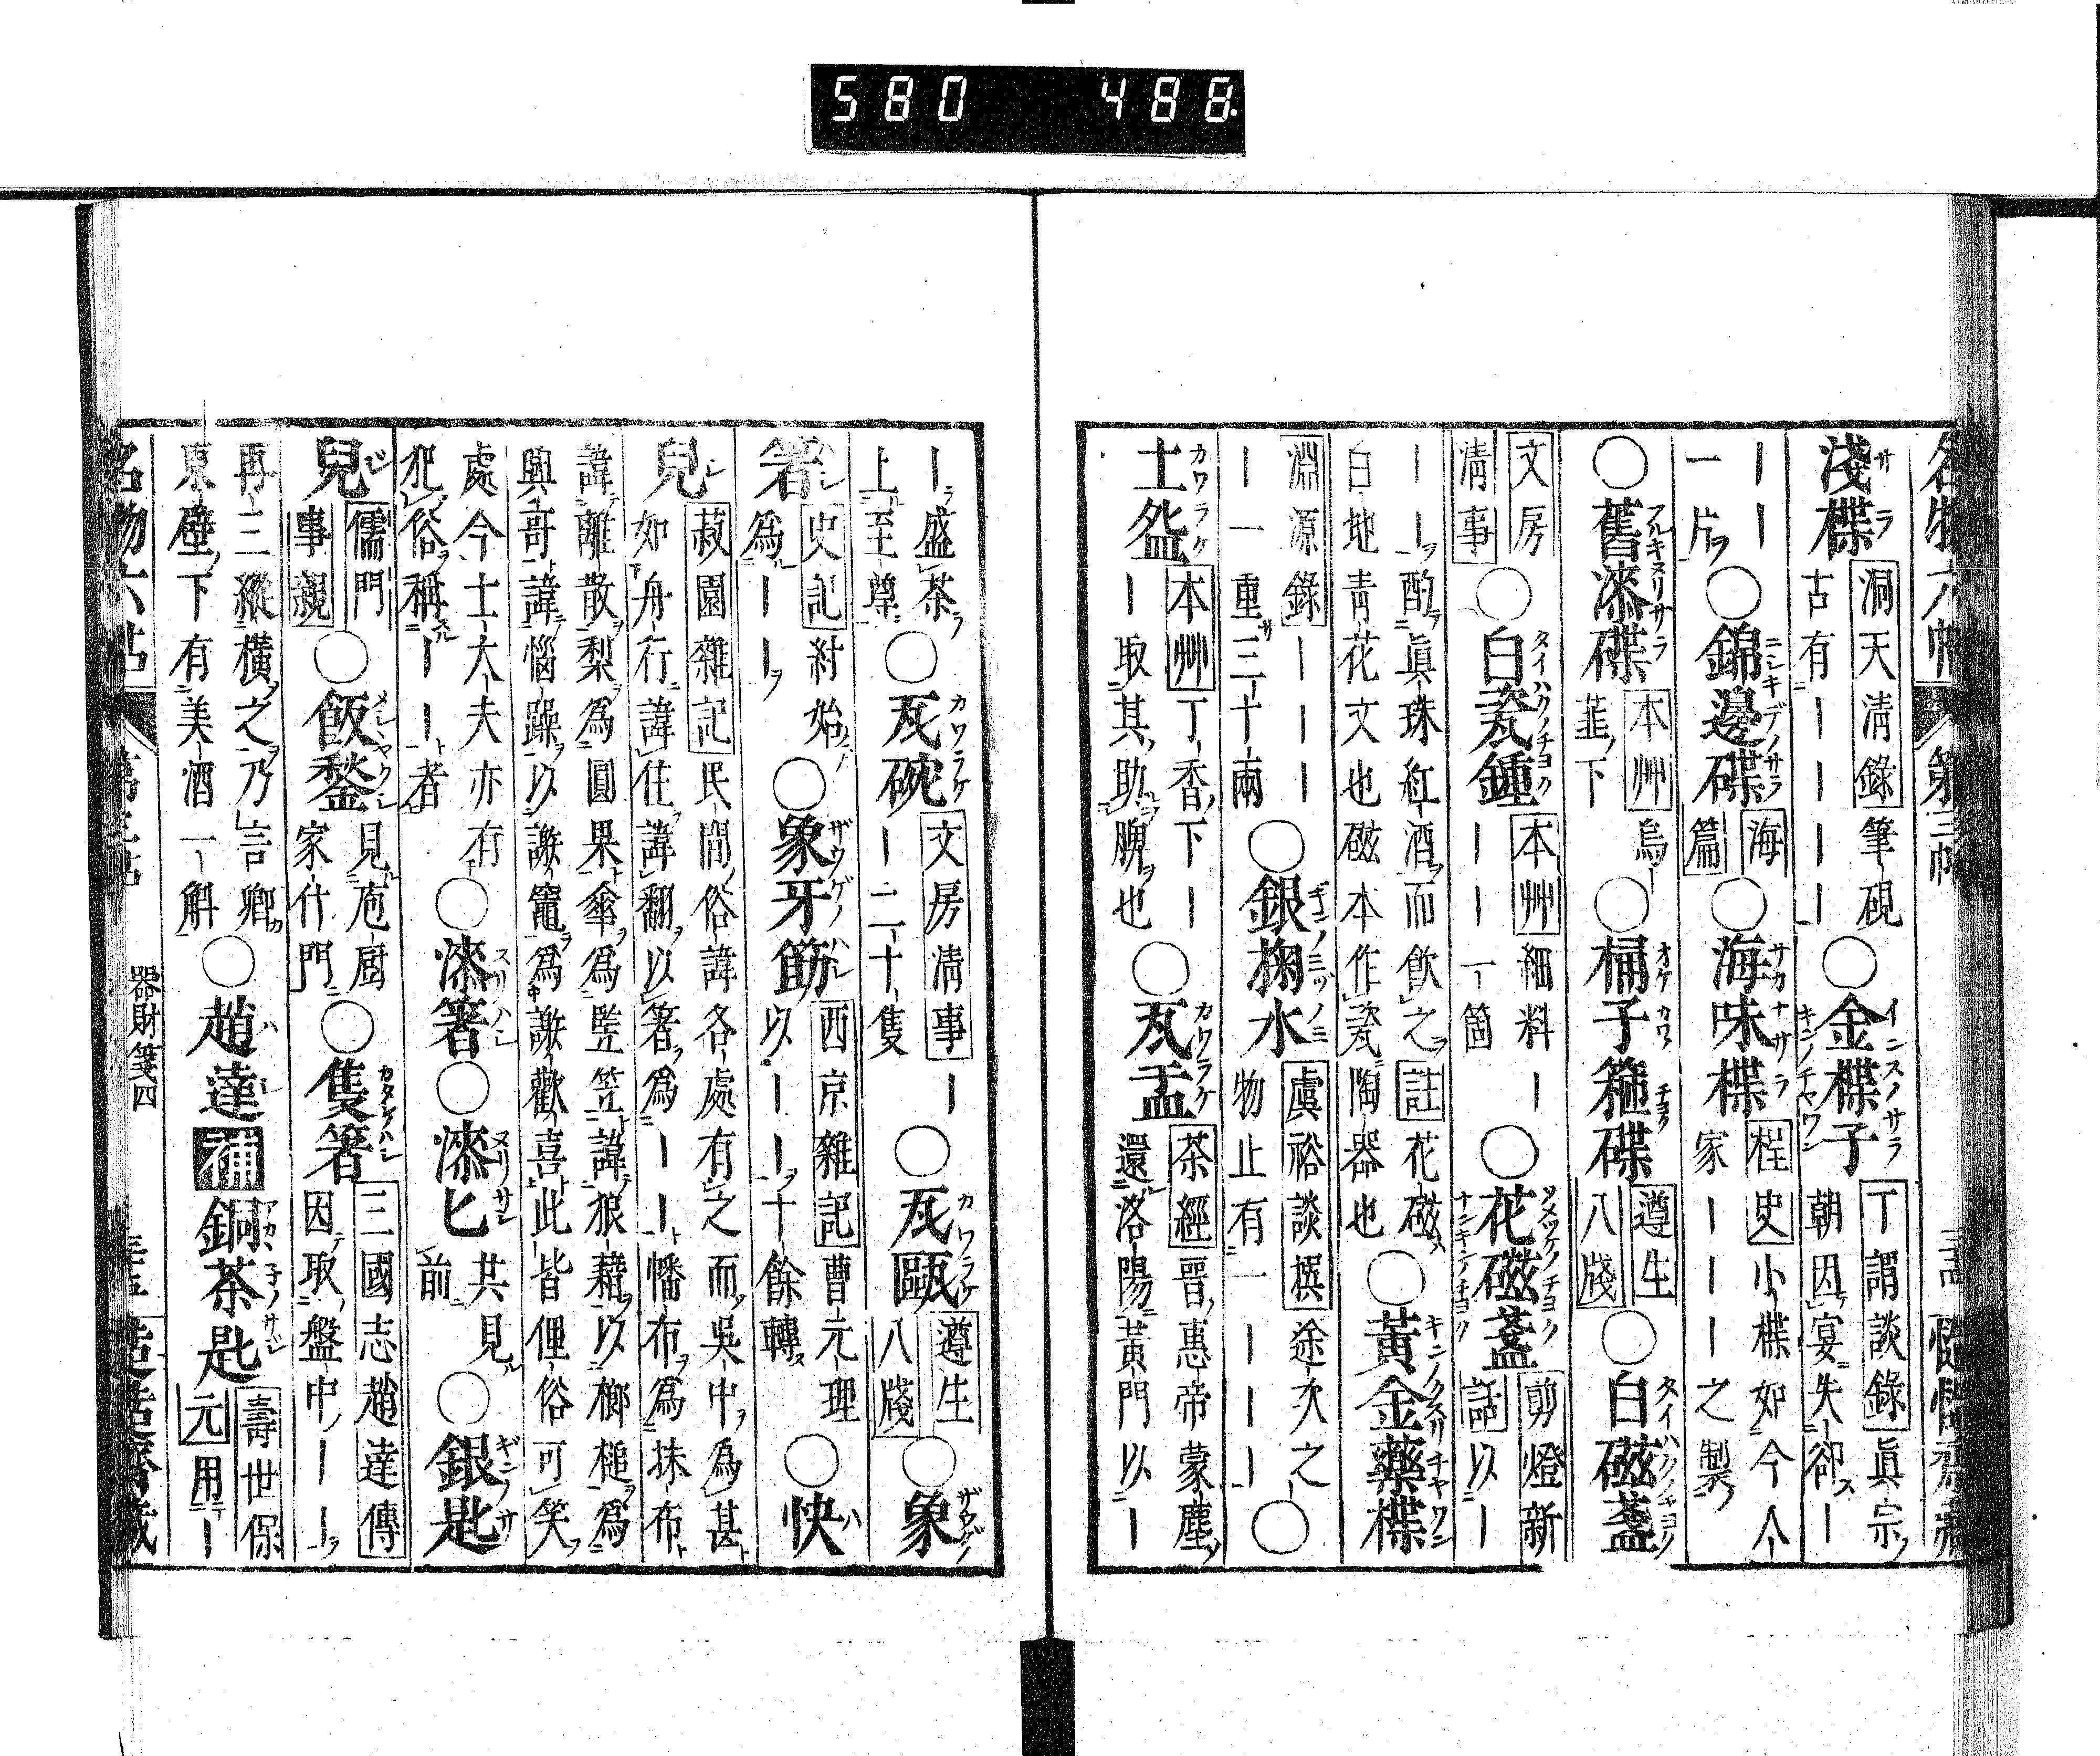 580 488
名物六帖 第三帖
淺楪 洞天清錄 筆硯
古有||||
〇金楪子 丁謂談錄 眞宗
朝因宴失卻|
|| 一片
〇錦邊碟 海篇
〇海味楪 桯史 小楪如今人
家||||之製
〇舊漆碟 本艸 烏
韮下
〇桶子箍碟 遵生八牋
〇白磁盞
文房清事
〇白瓷鍾 本艸 細料|
||一箇
〇花磁盞 剪燈新話 以|
||酌眞珠紅酒而飲之 註 花磁
白地青花文也磁本作瓷陶器也
〇黃金藥楪
淵源錄 ||||
|一重三十兩
〇銀掬水 虞裕談撰 途次之
物止有一||||
〇土盌 本艸 丁香下|
|取其助腴也
〇瓦盂 茶經 晉惠帝蒙塵
還洛陽黃門以|
|盛茶
上至尊
〇瓦碗 文房清事 |
|二十隻
〇瓦甌 遵生八牋
〇象
箸 史記 紂始
爲||
〇象牙筯 西京雜記 曹元理
以||十餘轉
〇快
兒 菽園雜記 民間俗諱各處有之而吳中爲甚
如舟行諱住諱翻以箸爲||幡布爲抹布
諱離散梨爲圓果傘爲竪笠諱狼藉以榔槌爲
興哥諱惱躁以謝竈爲謝歡喜此皆俚俗可笑
處今士大夫亦有
犯俗稱||者
〇漆箸 〇漆匕 共見
前
〇銀匙
兒 儒門事親
〇飯鍪 見庖厨
家什門
〇隻箸 三國志趙達傳
因取盤中||
再三縱橫之乃言卿
東壁下有美酒一斛
〇趙達
補 銅茶匙 壽世保元 用|
名物六帖 器財箋四